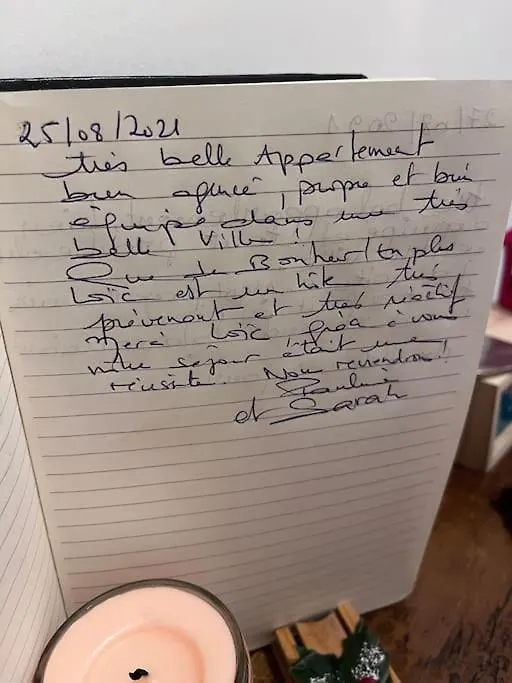 25/08/2021
très belle Appartement
bien agencé, propre et bien
équipés dans une très
belle Ville !
Que de Bonheur ! En plus
Loïc est un hôte très
prévenant et très réactif
Merci Loïc grâce à vous
notre séjour était une
réussite. Nous reviendrons !
Pauline
et Sarah